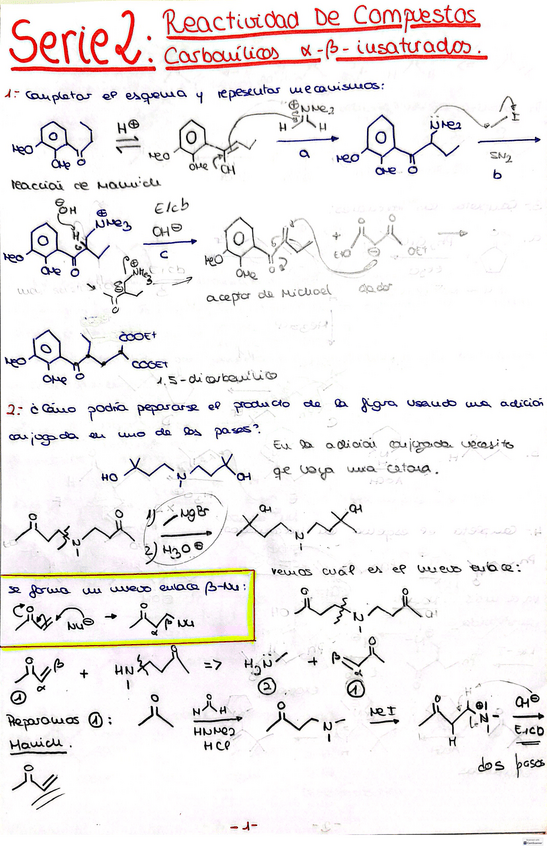 Serie 2: Reactividad De Compuestos
Carbonílicos α-β-insaturados.
1.- Completar el esquema y representar mecanismos:
H⊕
⊕NMe2
H H
NMe2
I
MeO OMe O
MeO OMe OH
a
MeO OMe O
SN2
b
reacción de Mannich
⊖OH
⊕NMe3
H
E1cb
OH⊖
c
MeO OMe O
MeO OMe O
+
O O
EtO ⊖ OEt
aceptor de Michael dador
COOEt
COOEt
MeO OMe O
1,5-dicarbonílico
2.- ¿Cómo podría prepararse el producto de la figura usando una adición
conjugada en uno de los pasos?
En la adición conjugada necesito
qe haya una cetona.
HO N OH
O N O
1) MgBr
2) H3O⊕
OH N OH
se forma un nuevo enlace β-Nu:
vemos cuál es el nuevo enlace:
O Nu⊖ → O α β Nu
O N O
O β α + HN O => H2N + β O α
1 2 1
Preparamos 1:
Manich.
O
O
H H
HNMe2
HCl
O N
MeI
O H H ⊕N
OH⊖
E1cb
dos pasos
O
-1-